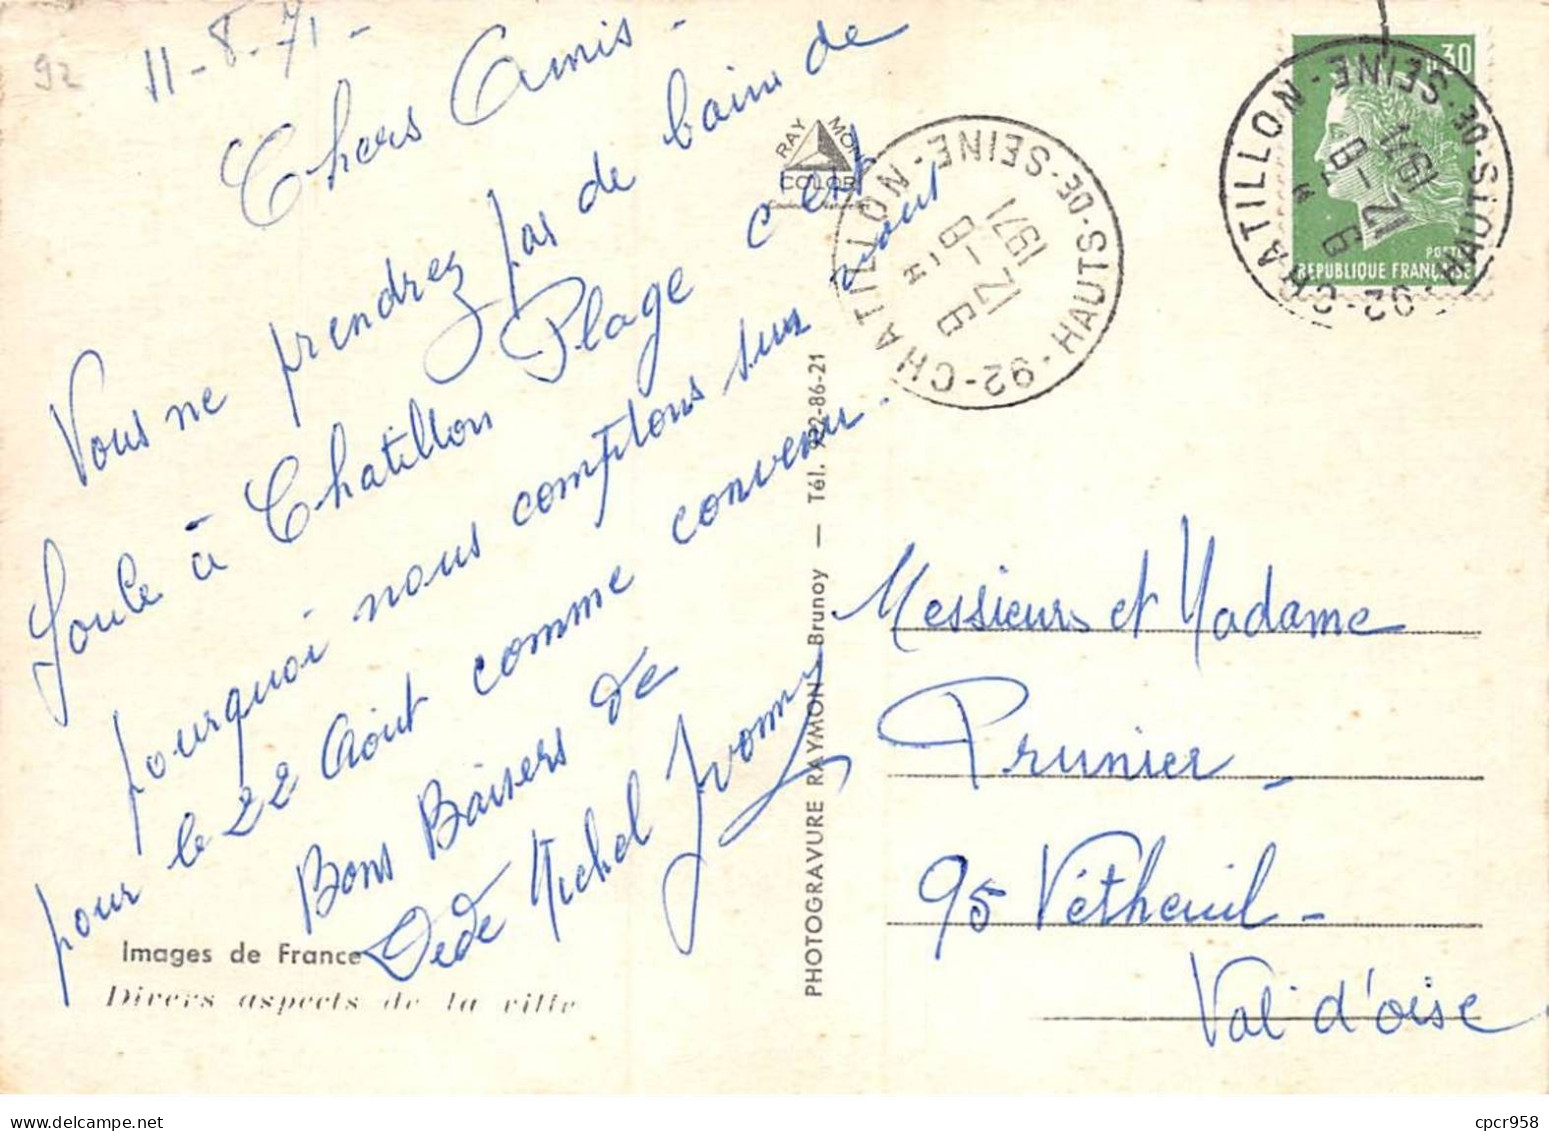 92
11-8-71-
Chers Amis-
Vous ne prendrez pas de bain de
foule à Chatillon Plage c'est
pourquoi nous comptons sur vous
pour le 22 Août comme convenu.
Bons Baisers de
Dédé Michel Yvonny
Images de France
Divers aspects de la ville
RAY MON
COLOR
PHOTOGRAVURE RAYMON - Brunoy — Tél. 922-86-21
92-CHATILLON-
HAUTS-DE-SEINE-
9 H
12-8
1971
0,30
POSTES
REPUBLIQUE FRANÇAISE
92-CHATILLON-
HAUTS-DE-SEINE-
9 H
12-8
1971
Messieurs et Madame
Prunier-
95 Vétheuil-
Val d'oise
cpcr958